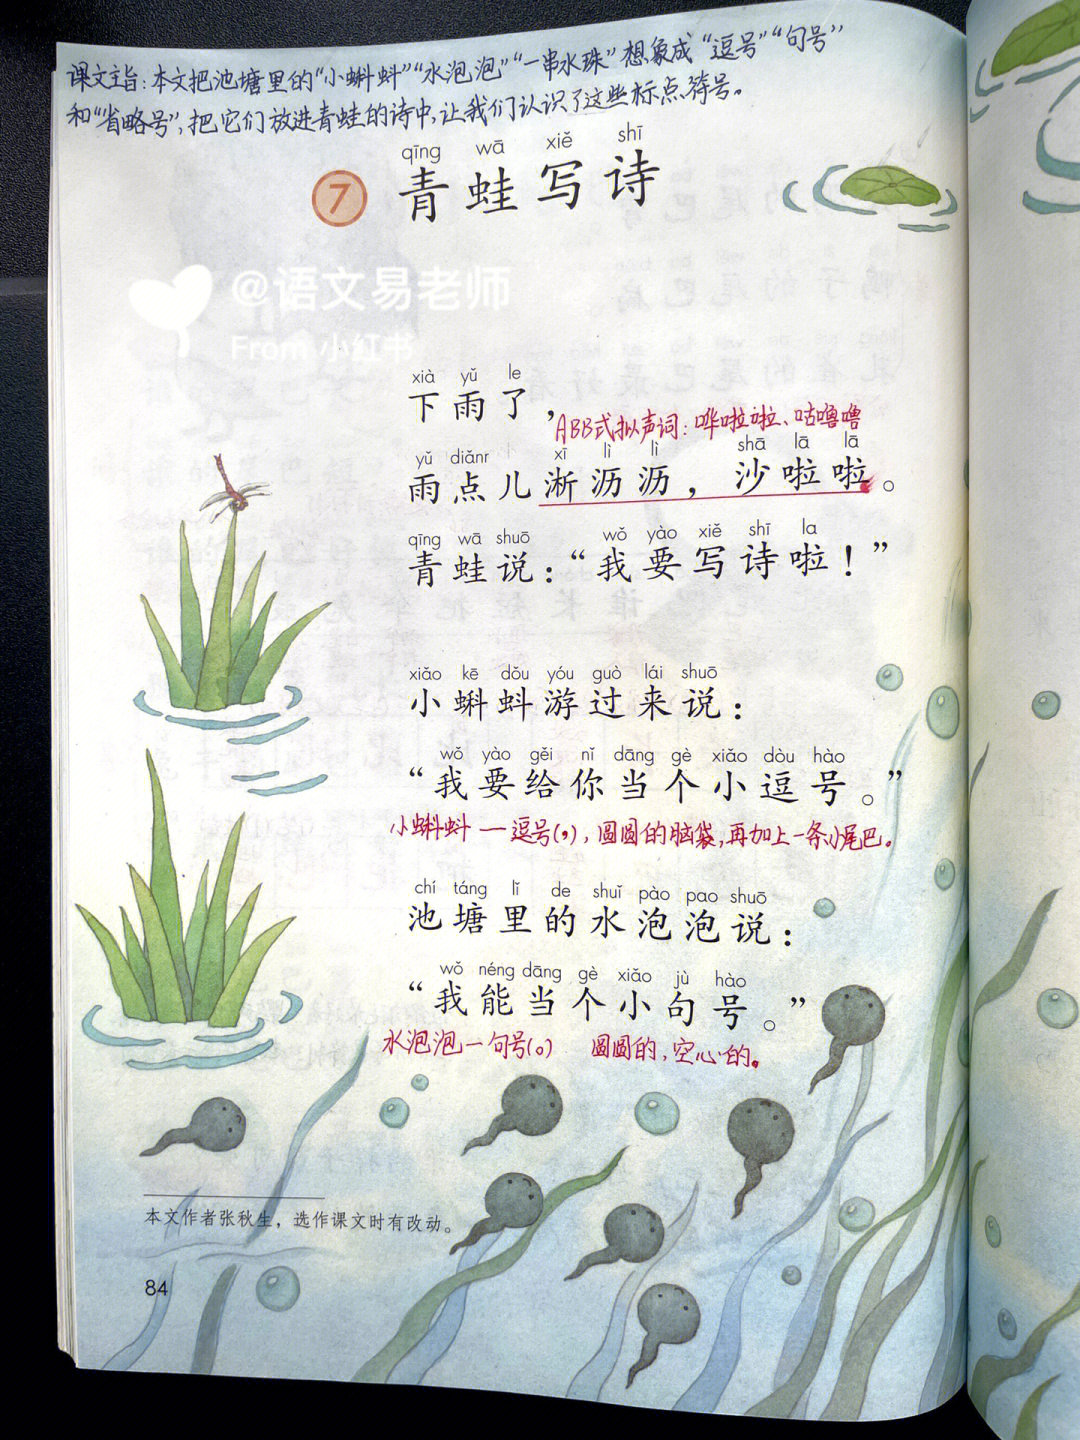 课文主旨：本文把池塘里的“小蝌蚪”“水泡泡”“一串水珠”想象成“逗号”“句号”
和“省略号”，把它们放进青蛙的诗中，让我们认识了这些标点符号。
qīng wā xiě shī
7 青蛙写诗
@语文易老师
From 小红书
xià yǔ le
下雨了，
ABB式拟声词：哗啦啦、咕噜噜
yǔ diǎnr xī lì lì shā lā lā
雨点儿淅沥沥，沙啦啦。
qīng wā shuō wǒ yào xiě shī la
青蛙说：“我要写诗啦！”
xiǎo kē dǒu yóu guò lái shuō
小蝌蚪游过来说：
wǒ yào gěi nǐ dāng gè xiǎo dòu hào
“我要给你当个小逗号。”
小蝌蚪—逗号(，)，圆圆的脑袋，再加上一条小尾巴。
chí táng lǐ de shuǐ pào pao shuō
池塘里的水泡泡说：
wǒ néng dāng gè xiǎo jù hào
“我能当个小句号。”
水泡泡—句号(。) 圆圆的，空心的。
本文作者张秋生，选作课文时有改动。
84